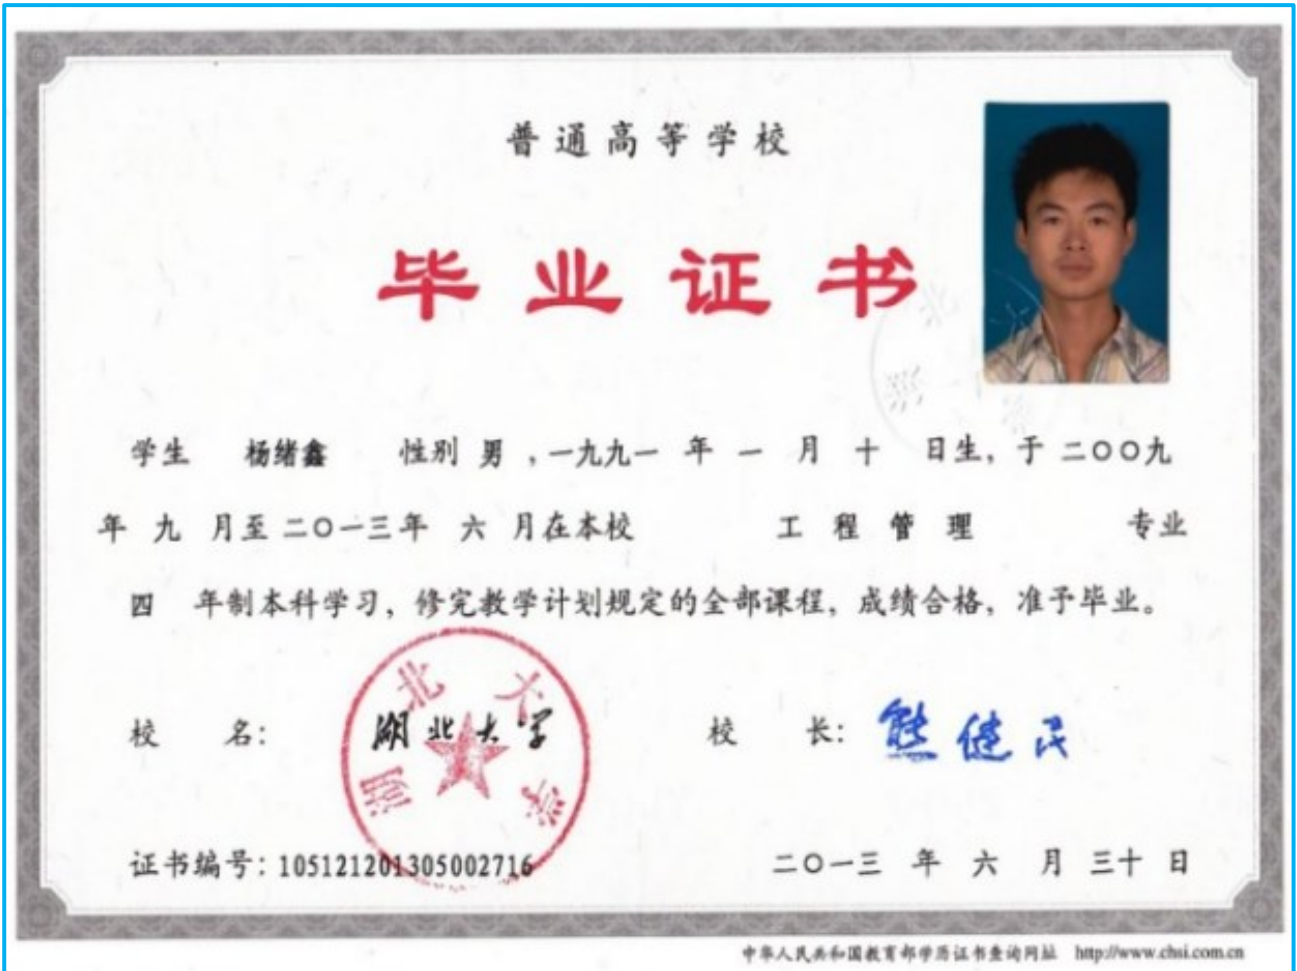 普通高等学校
毕业证书
学生 杨绪鑫 性别 男 ,一九九一 年 一 月 十 日生, 于 二〇〇九
年 九 月至 二〇一三年 六 月在本校 工程管理 专业
四 年制本科学习, 修完教学计划规定的全部课程, 成绩合格, 准予毕业。
校 名: 湖北大学 校 长: 熊健民
湖北大学
证书编号: 105121201305002716 二〇一三 年 六 月 三十 日
中华人民共和国教育部学历证书查询网址 http://www.chsi.com.cn